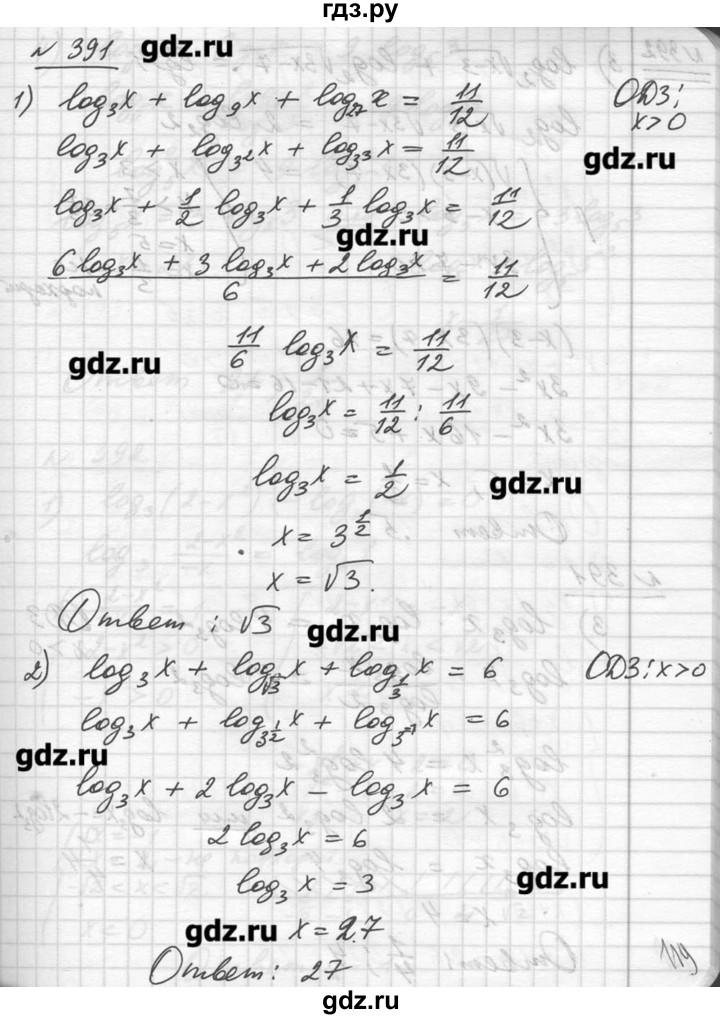 гдз.ру
№ 391
gdz.ru
1) log₃x + log₉x + log₂₇x = 11/12
ОДЗ:
x>0
log₃x + log₃²x + log₃³x = 11/12
gdz.ru
log₃x + 1/2 log₃x + 1/3 log₃x = 11/12
gdz.ru
(6 log₃x + 3 log₃x + 2 log₃x)/6 = 11/12
11/6 log₃x = 11/12
gdz.ru
log₃x = 11/12 : 11/6
log₃x = 1/2
gdz.ru
x = 3^(1/2)
x = √3.
Ответ: √3
gdz.ru
2) log₃x + log_√3 x + log_(1/3) x = 6
ОДЗ: x>0
log₃x + log_(3^(1/2)) x + log_(3^(-1)) x = 6
gdz.ru
log₃x + 2 log₃x − log₃x = 6
2 log₃x = 6
log₃x = 3
gdz.ru
gdz.ru
x = 27
Ответ: 27
119
gdz.ru